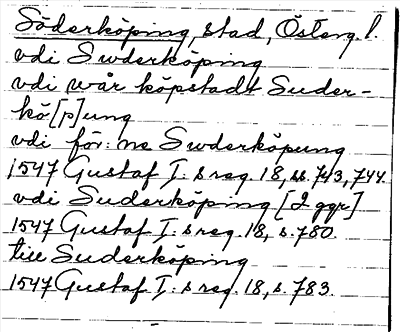 Söderköping, stad, Österg. l.
vdi Swderköping
vdi wår köpstadt Suder-
kö[p]ung
vdi för: ne Swderköpung
1547 Gustaf I: s reg. 18, ss. 743, 744.
vdi Suderköping [2 ggr]
1547 Gustaf I: s reg. 18, s. 780.
till Suderköping
1547 Gustaf I: s reg. 18, s. 783.